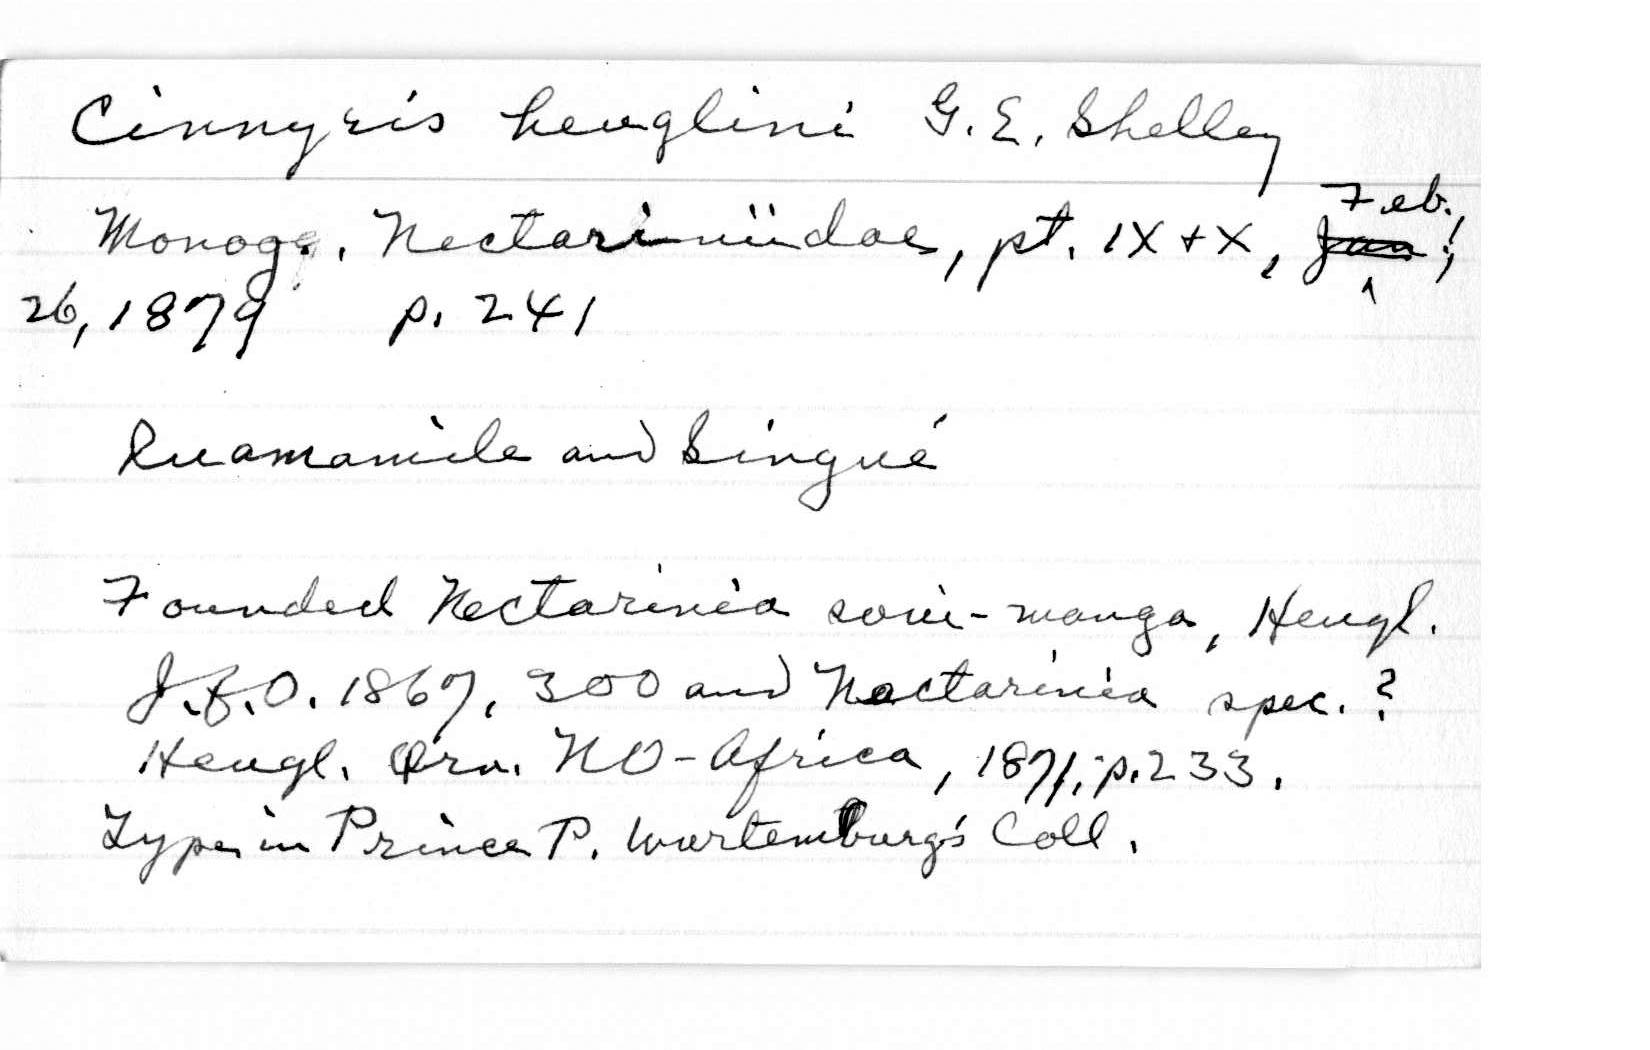 Cinnyris heuglini G. E. Shelley
Monogr. Nectariniidae, pt. IX + X, Feb.
26, 1879 p. 241
and Singué
Founded Nectarinia soui-manga, Heugl.
J.f.O. 1867, 300 and Nectarinia spec. ?
Heugl. Orn. NO-Africa, 1871, p. 233.
Type in Prince P. Wurtemburg's Coll.